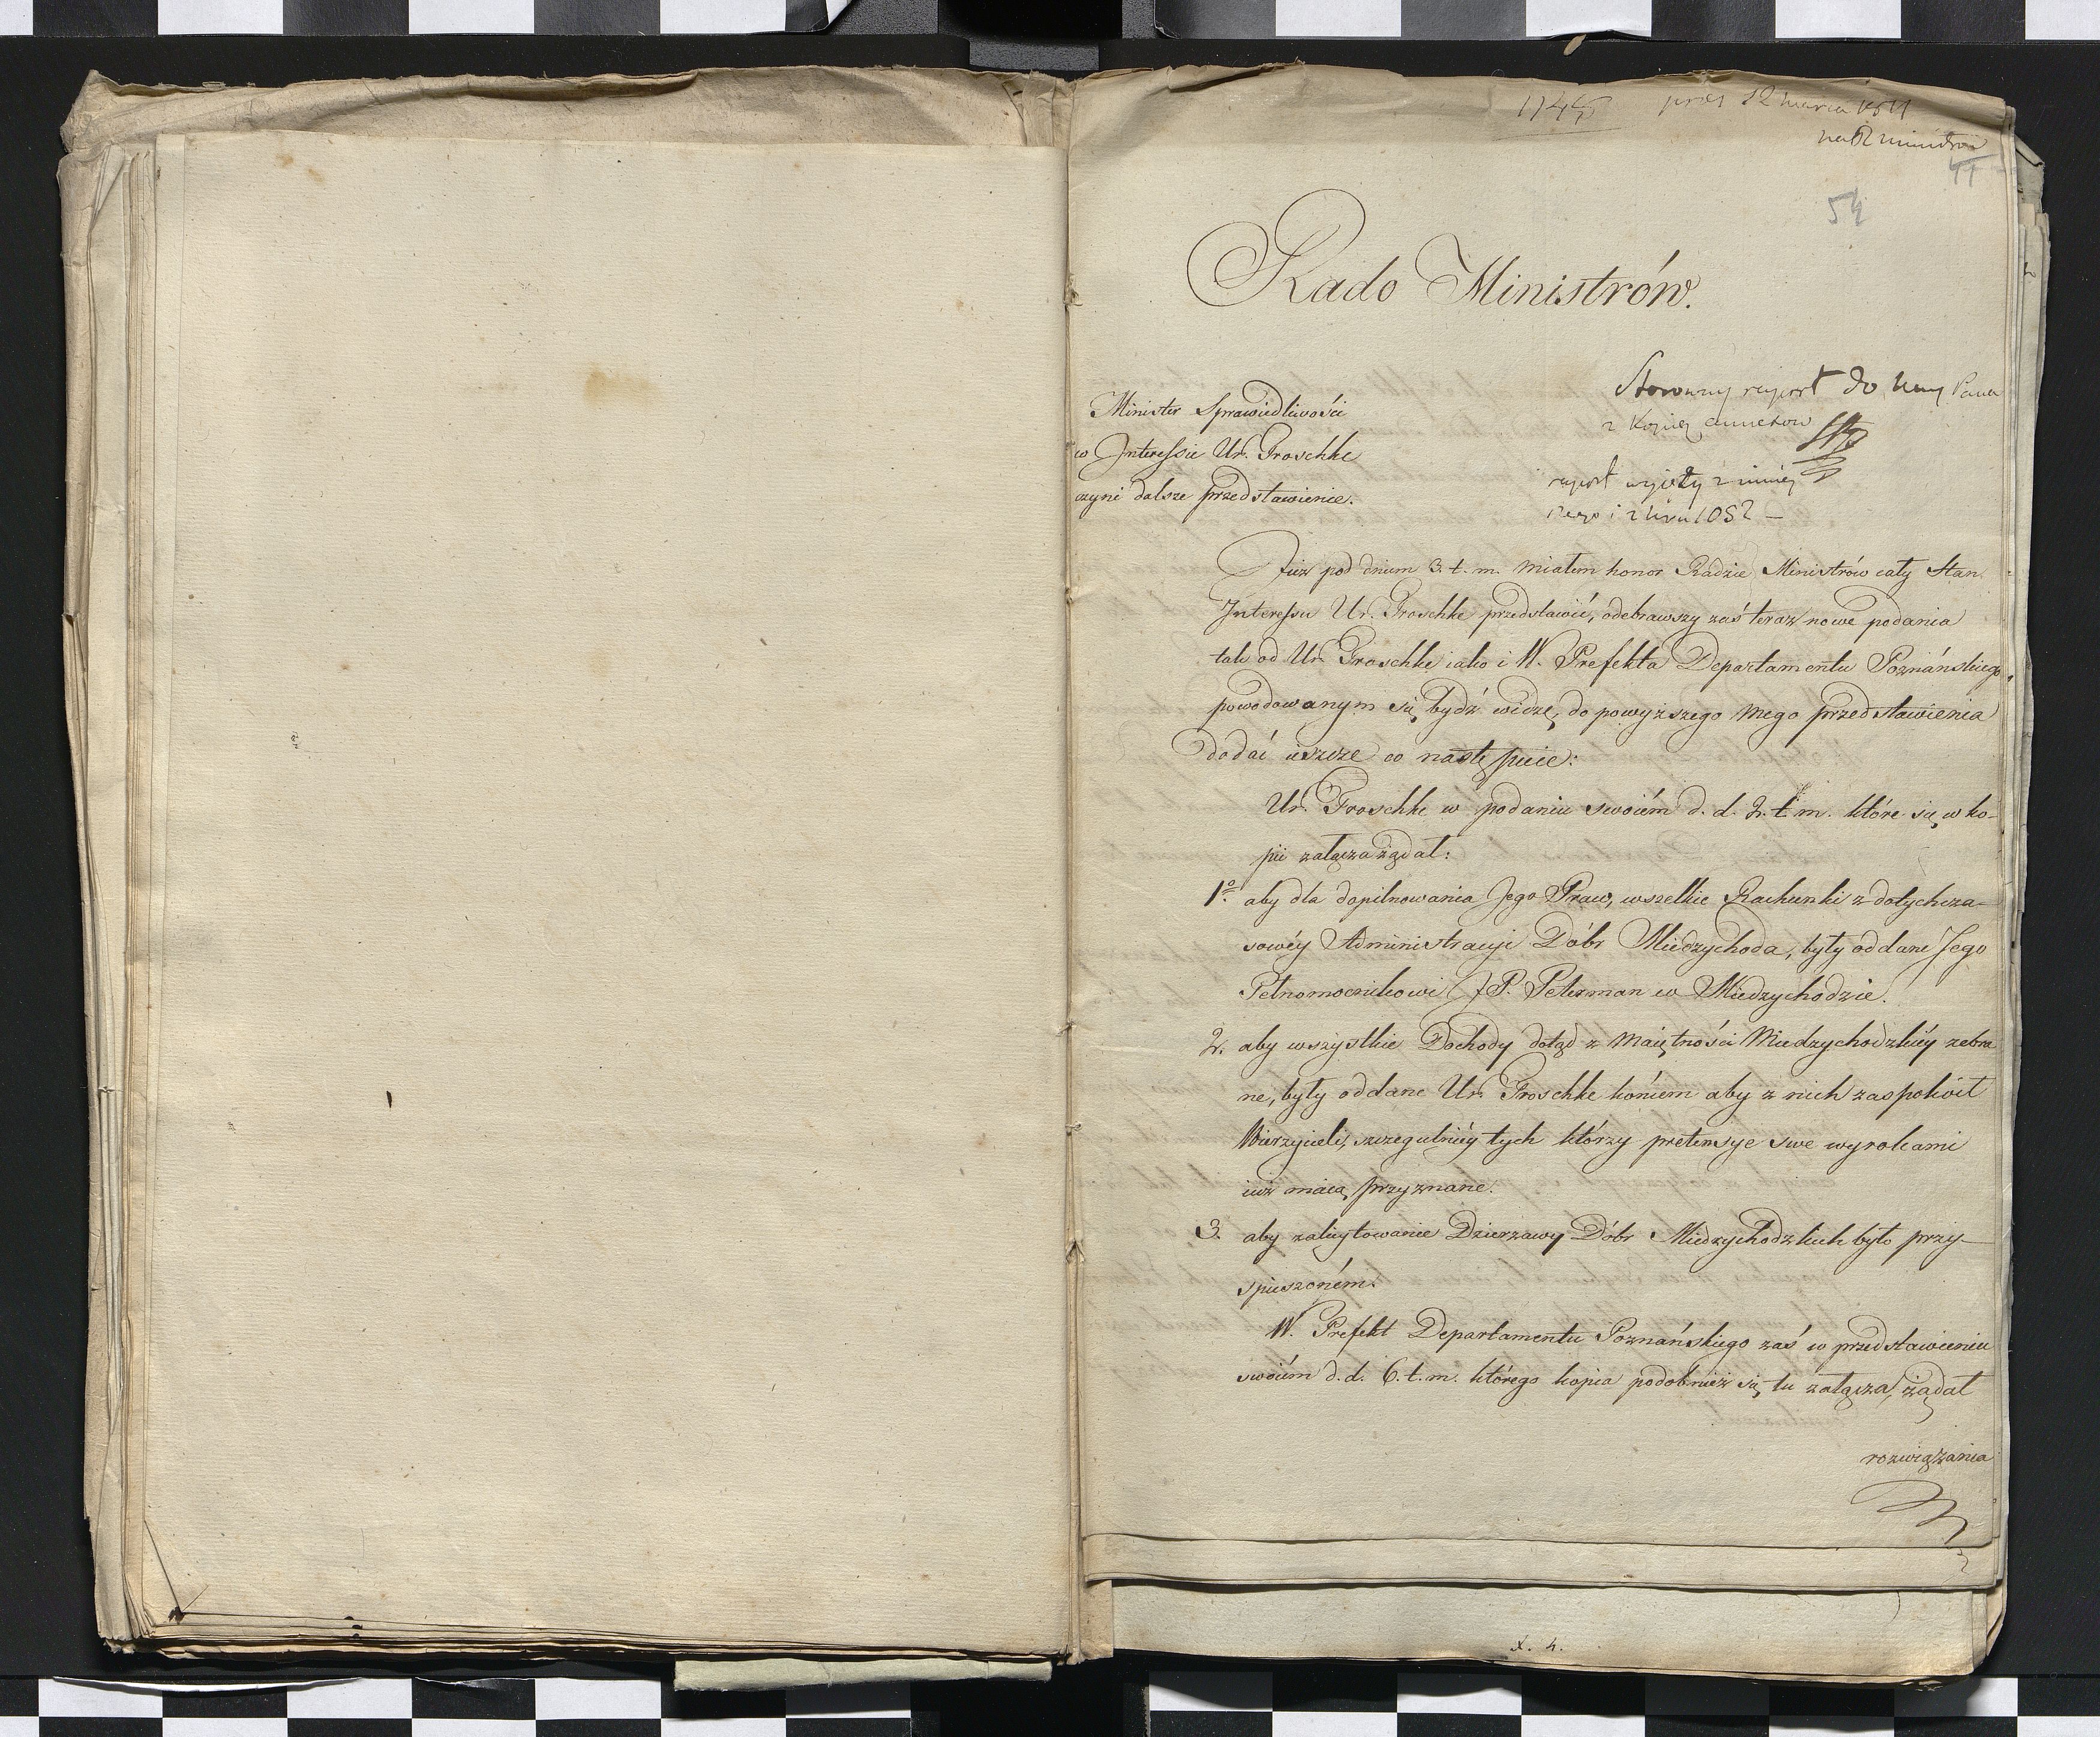 1745 pres 12 marca 1811
na R ministrów
41
54
Rado Ministrów.
Stosowny raport do Pana
z kopią annexow
Minister Sprawiedliwości
w Interessie Ur. Groschke
czyni dalsze przedstawienie.
raport wyięty z niniéj
szego i z Nru 1052 –
Już pod dniem 3. t. m. miałem honor Radzie Ministrów cały Stan
Interessu Ur. Groschke przedstawić, odebrawszy zaś teraz nowe podania
tak od Ur. Groschke iako i W. Prefekta Departamentu Poznańskiego,
powodowanym się bydź widzę, do powyższego mego przedstawienia
dodać ieszcze co następuie:
Ur. Groschke w podaniu swoiém d. d. 2. t. m. które się w ko-
pii załącza żądał:
1º. aby dla dopilnowania Jego Praw, wszelkie Rachunki z dotychcza-
sowéy Administracyi Dóbr Miedzychoda, były oddane Jego
Pełnomocnikowi J P. Peterman w Miedzychodzie.
2. aby wszystkie Dochody dotąd z maiętności Miedzychodzkiéy zebra
ne, były oddane Ur. Groschke końcem aby z nich zaspokoił
Wierzycieli, szczegulniéy tych którzy pretensye swe wyrokami
iuż maią przyznane.
3. aby zalicytowanie Dzierzawy Dóbr Miedzychodzkich było przy-
spieszoném.
W. Prefekt Departamentu Poznańskiego zaś w przedstawieniu
swoiém d. d. 6. t. m. którego kopia podobnież się tu załącza, żądał
rozwiązania